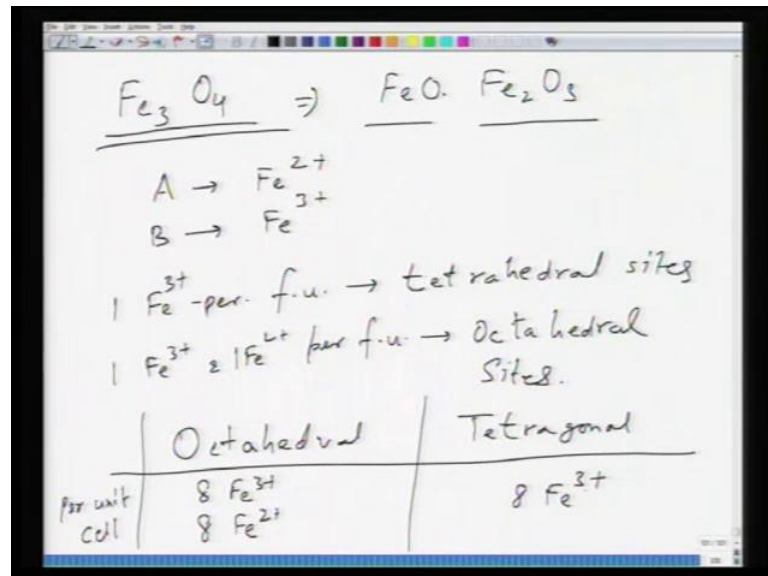 Fe3 O4 ⇒ FeO. Fe2O3
A → Fe2+
B → Fe3+
1 Fe3+ -per. f.u. → tetrahedral sites
1 Fe3+ & 1Fe2+ per f.u. → Octahedral
Sites.
Octahedral Tetragonal
Per unit 8 Fe3+ 8 Fe3+
cell 8 Fe2+